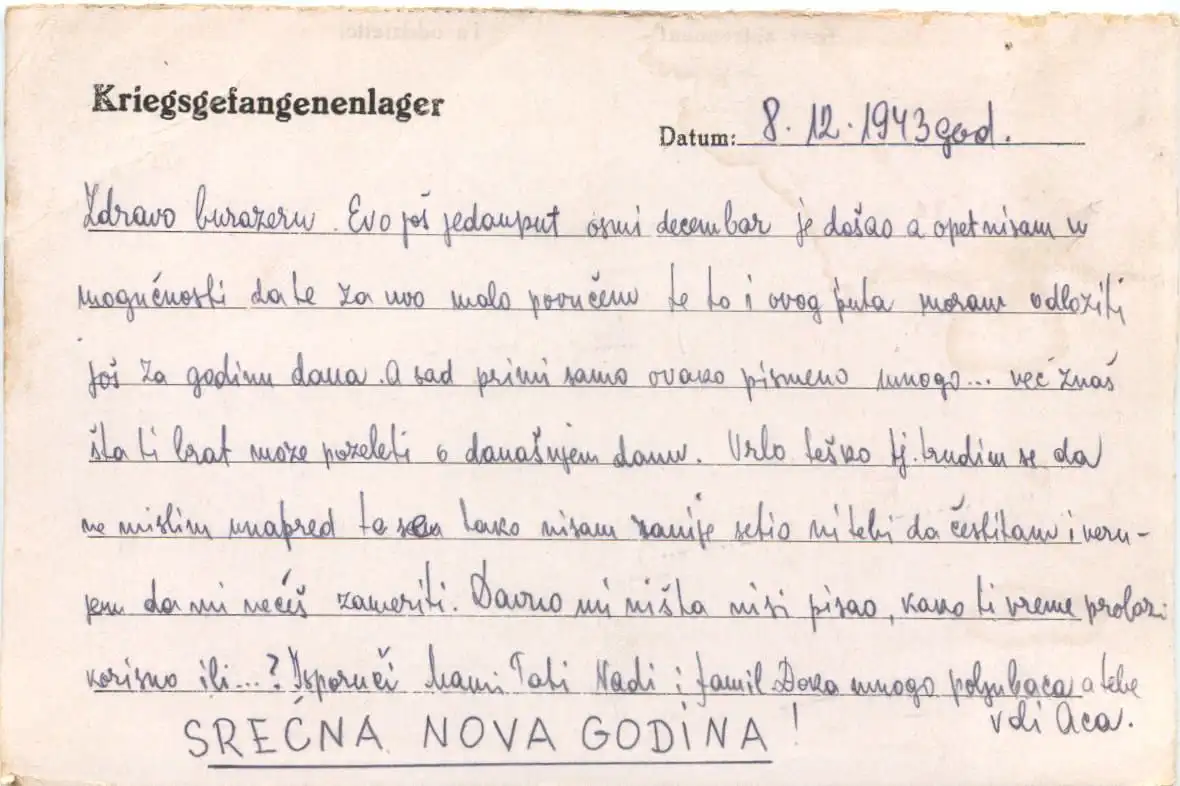 Kriegsgefangenenlager
Datum: 8. 12. 1943 god.
Zdravo burazeru. Evo još jedamput osmi decembar je došao a opet nisam u
mogućnosti da te za uvo malo povučem te to i ovog puta moram odložiti
još za godinu dana. A sad primi samo ovako pismeno mnogo... već znaš
šta ti brat može poželeti o današnjem danu. Vrlo teško tj. trudim se da
ne mislim unapred ta se tako nisam ranije setio ni tebi da čestitam i veru-
jem da mi nećeš zameriti. Davno mi ništa nisi pisao, kako ti vreme prolazi
korisno ili...? Isporuči Mami Tati Nadi i famil. Đoka mnogo poljubaca a tebe
voli Aca.
SREĆNA NOVA GODINA!